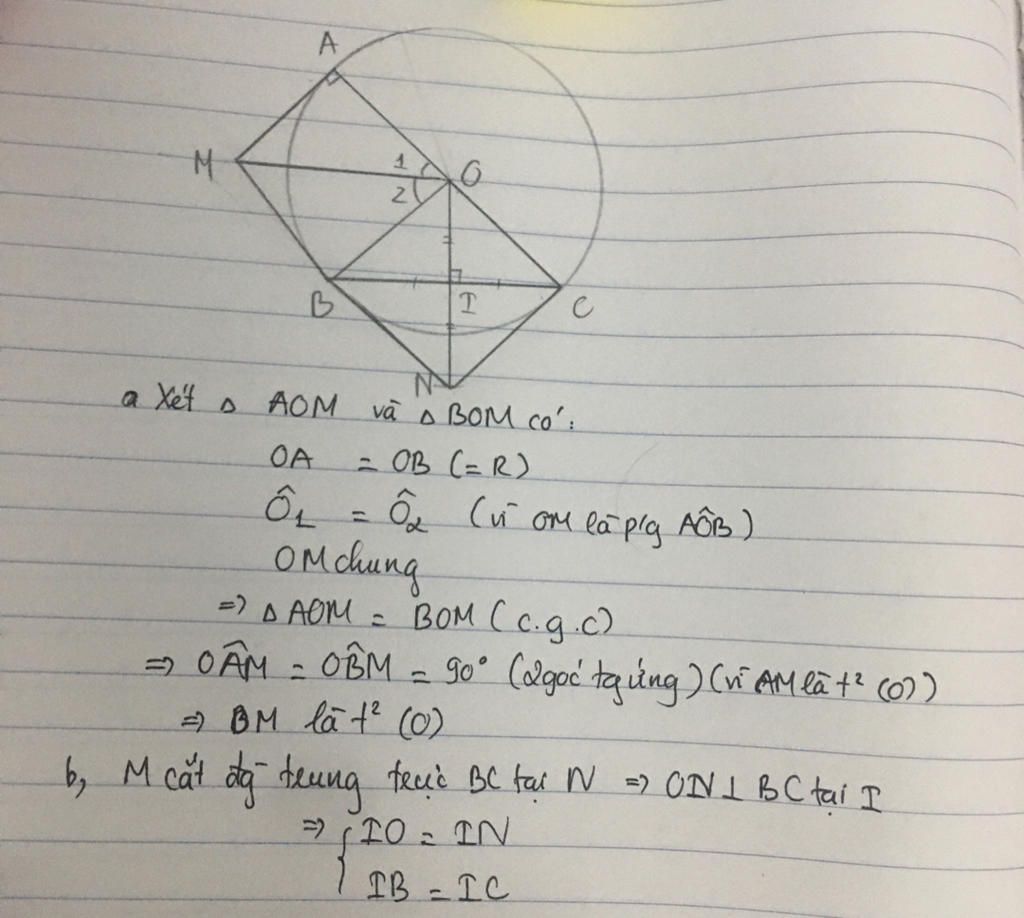 A
M
1
O
2
B
I
C
N
a Xét △ AOM và △ BOM có:
OA = OB (= R)
Ô1 = Ô2 (vì OM là p/g AÔB)
OM chung
=> △ AOM = BOM (c.g.c)
=> OÂM = OB̂M = 90° (2 góc tg ứng) (vì AM là t² (O))
=> BM là t² (O)
b, M cắt đg trung trực BC tại N => ON ⊥ BC tại I
=> { IO = IN
IB = IC